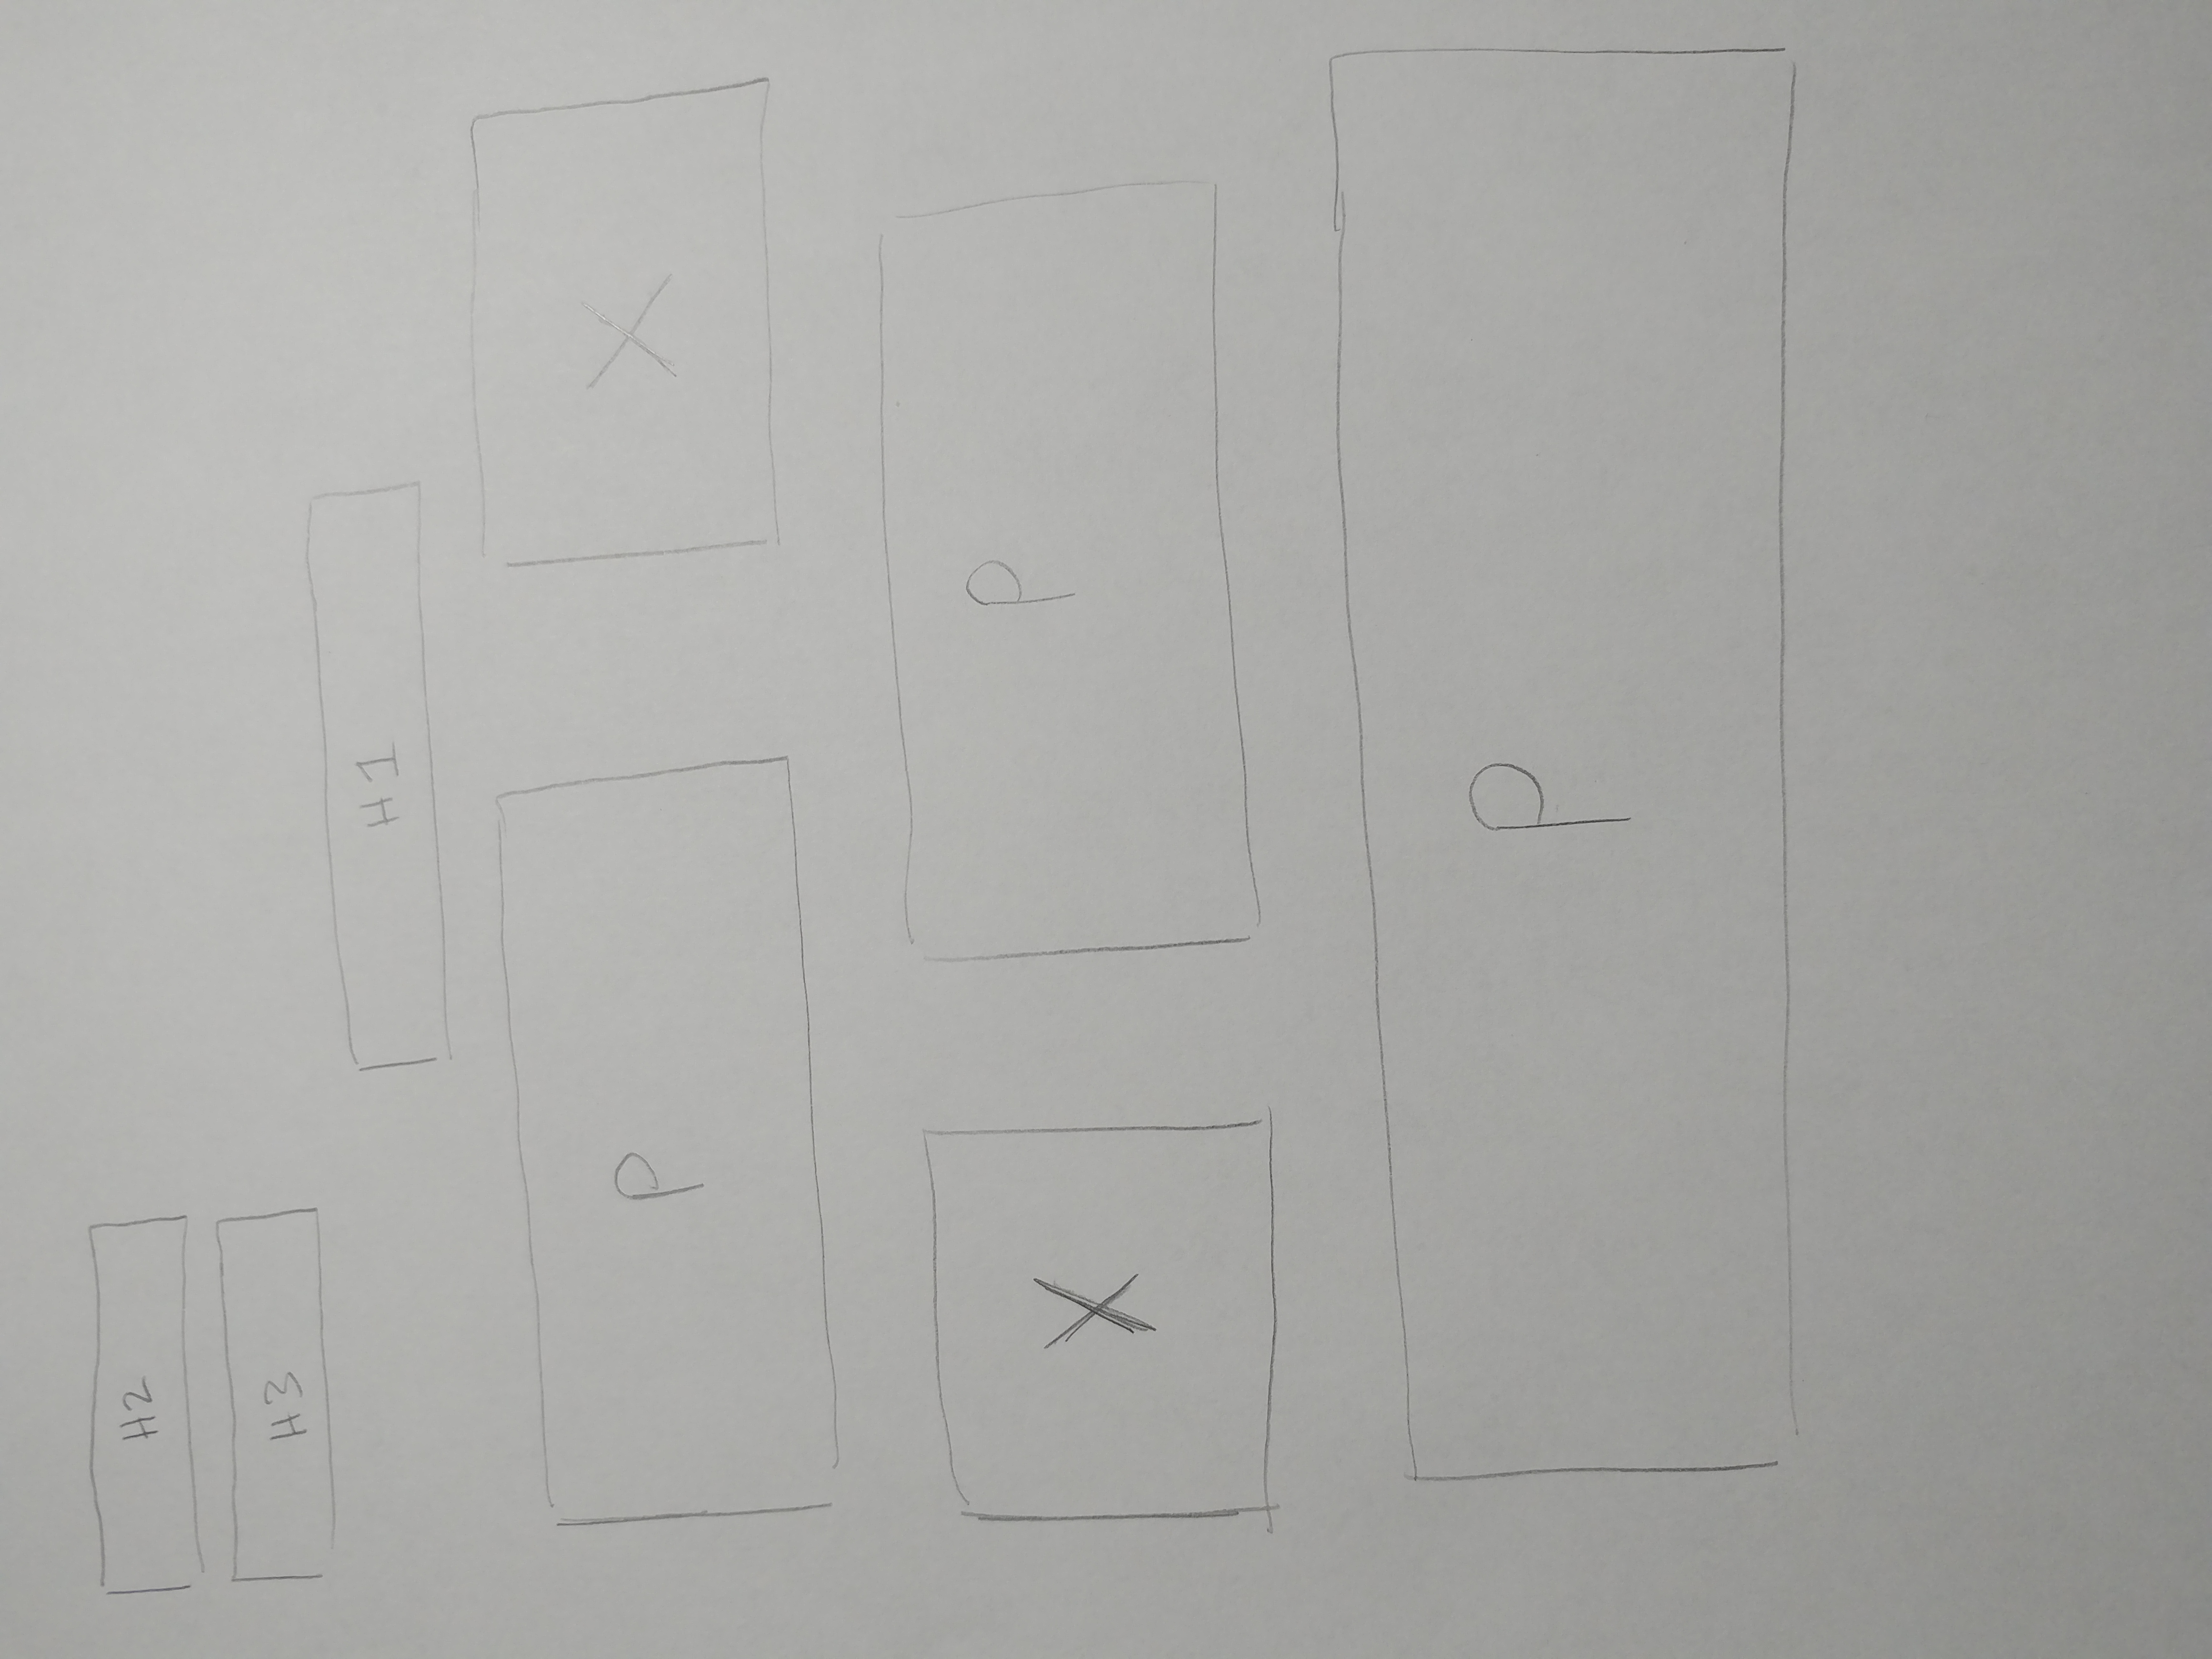 H2
H3
H1
P X
X P
P